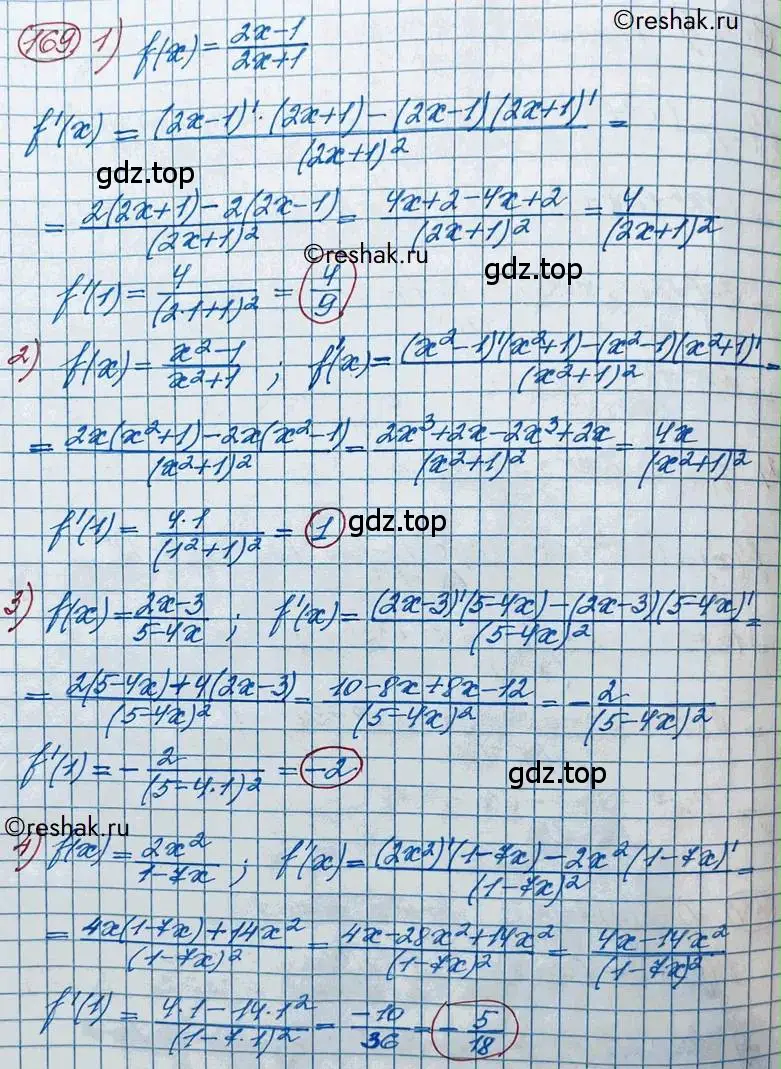 ©reshak.ru
169 1) f(x) = (2x-1)/(2x+1)
f'(x) = ((2x-1)'·(2x+1)-(2x-1)(2x+1)')/(2x+1)² =
gdz.top
= (2(2x+1)-2(2x-1))/(2x+1)² = (4x+2-4x+2)/(2x+1)² = 4/(2x+1)²
©reshak.ru
gdz.top
f'(1) = 4/(2·1+1)² = 4/9
2) f(x) = (x²-1)/(x²+1) ; f'(x) = ((x²-1)'(x²+1)-(x²-1)(x²+1)')/(x²+1)² =
= (2x(x²+1)-2x(x²-1))/(x²+1)² = (2x³+2x-2x³+2x)/(x²+1)² = 4x/(x²+1)²
f'(1) = (4·1)/(1²+1)² = 1 gdz.top
3) f(x) = (2x-3)/(5-4x) ; f'(x) = ((2x-3)'(5-4x)-(2x-3)(5-4x)')/(5-4x)² =
= (2(5-4x)+4(2x-3))/(5-4x)² = (10-8x+8x-12)/(5-4x)² = -2/(5-4x)²
f'(1) = -2/(5-4·1)² = -2 gdz.top
©reshak.ru
4) f(x) = 2x²/(1-7x) ; f'(x) = ((2x²)'(1-7x)-2x²(1-7x)')/(1-7x)² =
= (4x(1-7x)+14x²)/(1-7x)² = (4x-28x²+14x²)/(1-7x)² = (4x-14x²)/(1-7x)²
f'(1) = (4·1-14·1²)/(1-7·1)² = -10/36 = -5/18